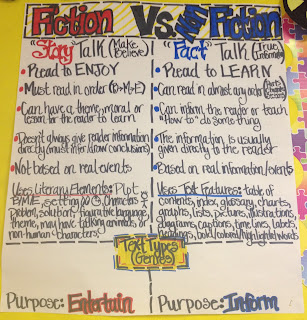 Fiction Vs. Non Fiction
"Story" Talk (Make Believe)
• Read to ENJOY
• Must read in order (B-M-E)
• Can have a theme, moral or
lesson for the reader to learn
• Doesn't always give reader information
directly (must infer/draw conclusions)
• Not based on real events
Uses Literary Elements: Plot
BME, setting
Problem, solution, figurative language,
theme, may have talking animals or
non-human characters!
"Fact" Talk (True Information)
• Read to LEARN
• Can read in almost any order
• Can inform the reader or teach
"How to" do something
• The information is usually
given directly to the reader
• Based on real information/events
Uses Text Features: table of
contents, index, glossary, charts,
graphs, lists, pictures, illustrations,
diagrams, captions, time lines, labels,
headings, bold/colored/highlighted words
Text Types
(Genres)
Purpose: Entertain
Purpose: Inform